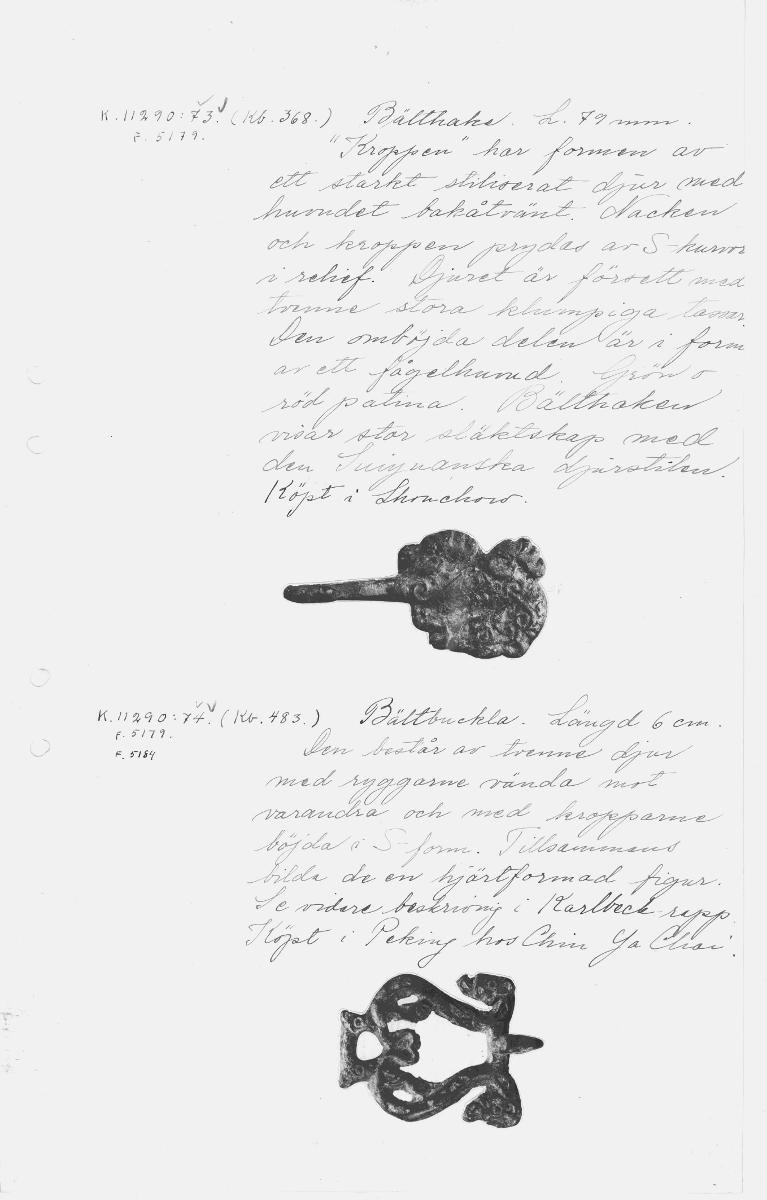 K.11290:73. (Kb. 368.) Bälthake. L. 79 mm.
F. 5179.
"Kroppen" har formen av
ett starkt stiliserat djur med
huvudet bakåtvänt. Nacken
och kroppen prydas av S-kurvor
i relief. Djuret är försett med
tvenne stora klumpiga tassar
Den omböjda delen är i form
av ett fågelhuvud. Grön o
röd patina. Bälthaken
visar stor släktskap med
den Suiyuanska djurstilen.
Köpt i Shouchow.
K.11290:74. (Kb. 483.) Bältbuckla. Längd 6 cm.
F. 5179.
F. 5184
Den består av tvenne djur
med ryggarne vända mot
varandra och med kropparne
böjda i S-form. Tillsammans
bilda de en hjärtformad figur.
Se vidare beskrivnig i Karlbeck-rapp.
Köpt i Peking hos Chin Ya Chai.